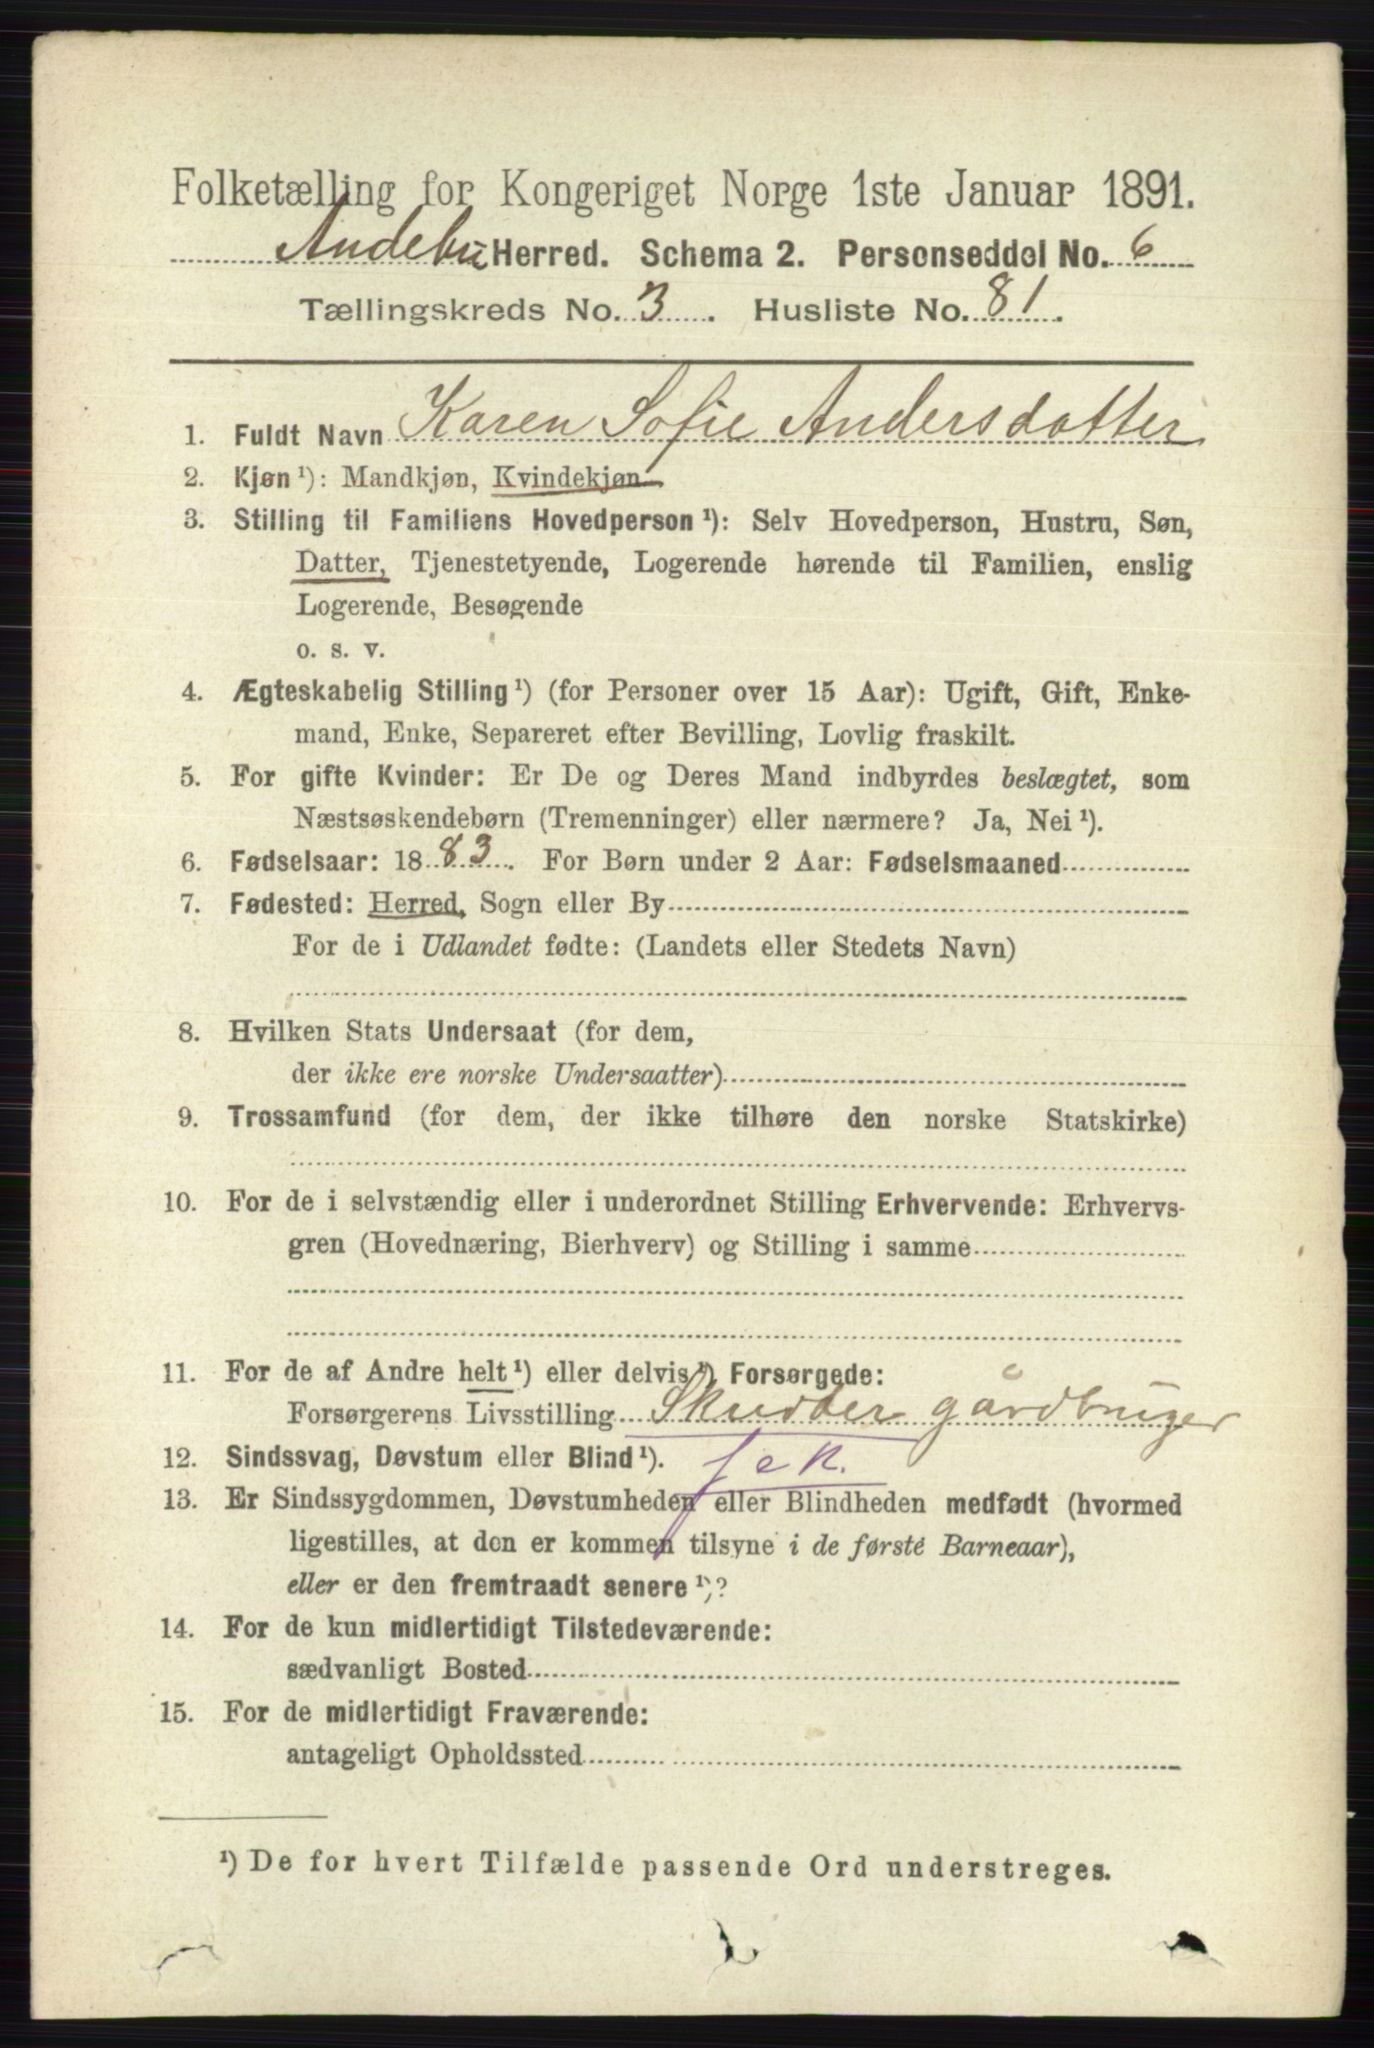 Folketælling for Kongeriget Norge 1ste Januar 1891.
Andebu Herred. Schema 2. Personseddel No. 6
Tællingskreds No. 3. Husliste No. 81.
1. Fuldt Navn Karen Sofie Andersdatter
2. Kjøn ¹): Mandkjøn, Kvindekjøn
3. Stilling til Familiens Hovedperson ¹): Selv Hovedperson, Hustru, Søn,
Datter, Tjenestetyende, Logerende hørende til Familien, enslig
Logerende, Besøgende
o. s. v.
4. Ægteskabelig Stilling ¹) (for Personer over 15 Aar): Ugift, Gift, Enke-
mand, Enke, Separeret efter Bevilling, Lovlig fraskilt.
5. For gifte Kvinder: Er De og Deres Mand indbyrdes beslægtet, som
Næstsøskendebørn (Tremenninger) eller nærmere? Ja, Nei ¹).
6. Fødselsaar: 1883. For Børn under 2 Aar: Fødselsmaaned
7. Fødested: Herred, Sogn eller By
For de i Udlandet fødte: (Landets eller Stedets Navn)
8. Hvilken Stats Undersaat (for dem,
der ikke ere norske Undersaatter)
9. Trossamfund (for dem, der ikke tilhøre den norske Statskirke)
10. For de i selvstændig eller i underordnet Stilling Erhvervende: Erhvervs-
gren (Hovednæring, Bierhverv) og Stilling i samme
11. For de af Andre helt ¹) eller delvis ¹) Forsørgede:
Forsørgerens Livsstilling gårdbruger
12. Sindssvag, Døvstum eller Blind ¹).
13. Er Sindssygdommen, Døvstumheden eller Blindheden medfødt (hvormed
ligestilles, at den er kommen tilsyne i de første Barneaar),
eller er den fremtraadt senere ¹)?
14. For de kun midlertidigt Tilstedeværende:
sædvanligt Bosted
15. For de midlertidigt Fraværende:
antageligt Opholdssted
¹) De for hvert Tilfælde passende Ord understreges.